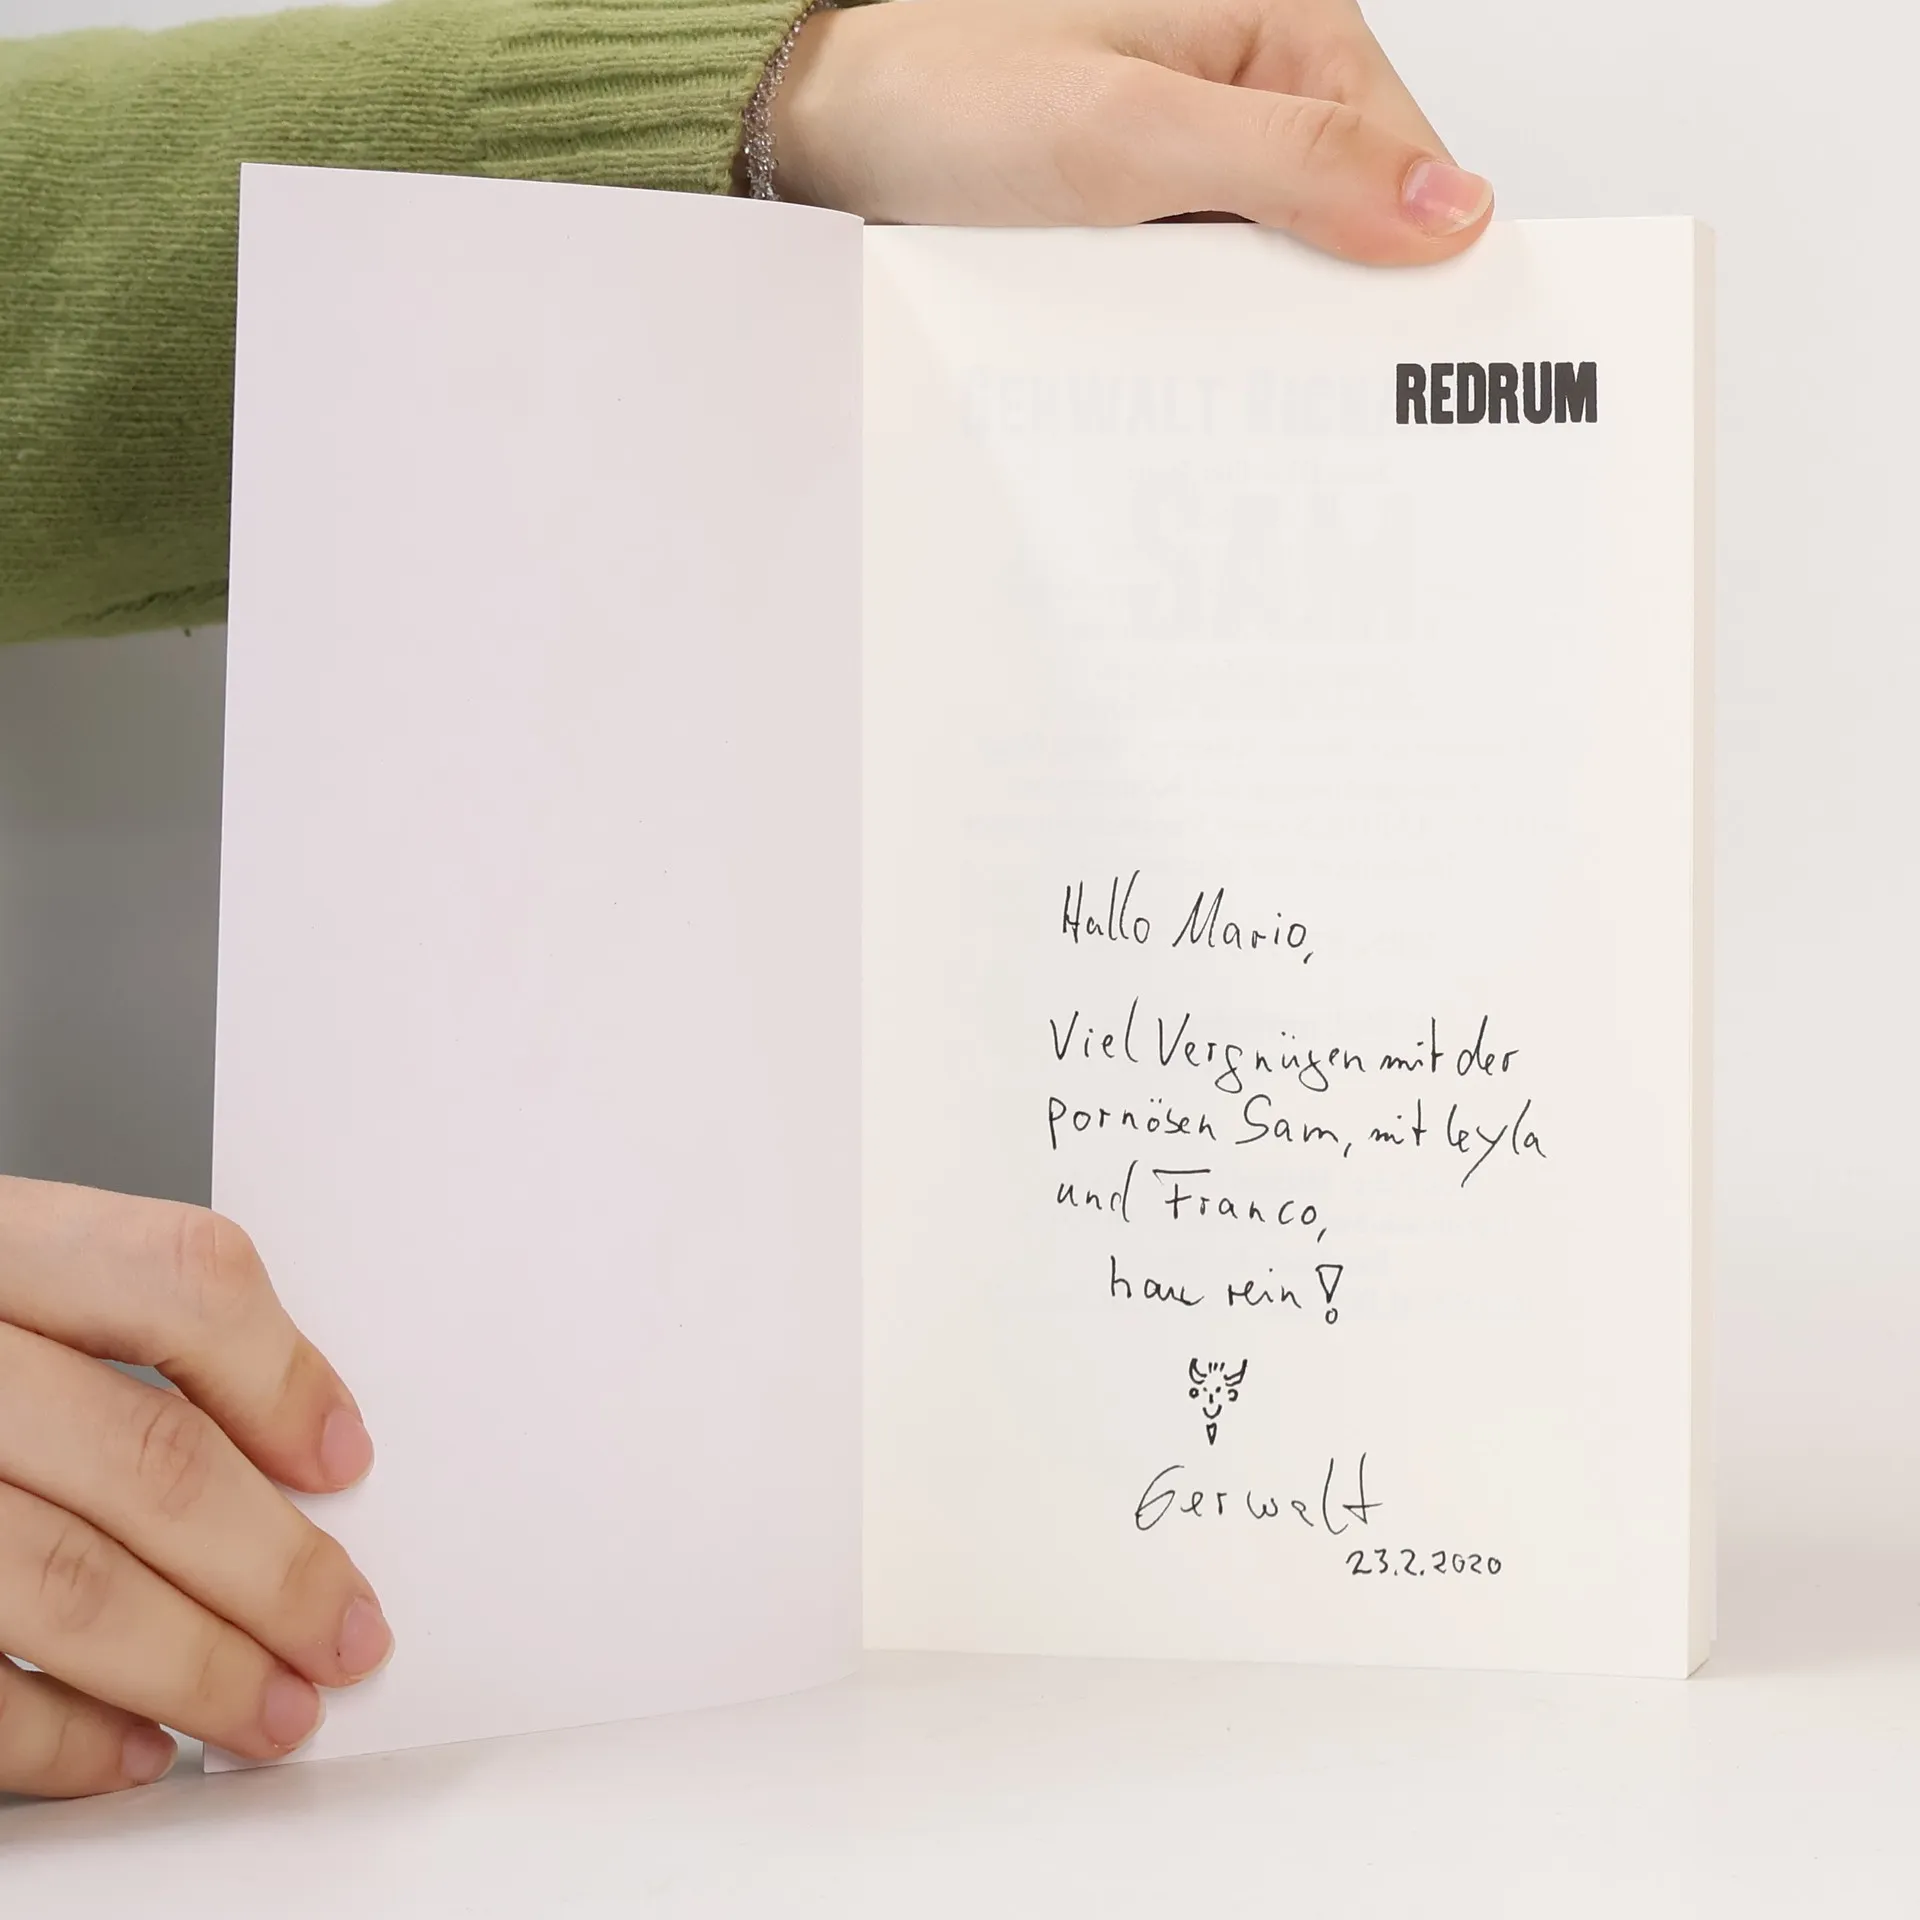 REDRUM
Hallo Mario,
Viel Vergnügen mit der
pornösen Sam, mit Leyla
und Franco,
hau rein!
Gerwalt
23.2.2020